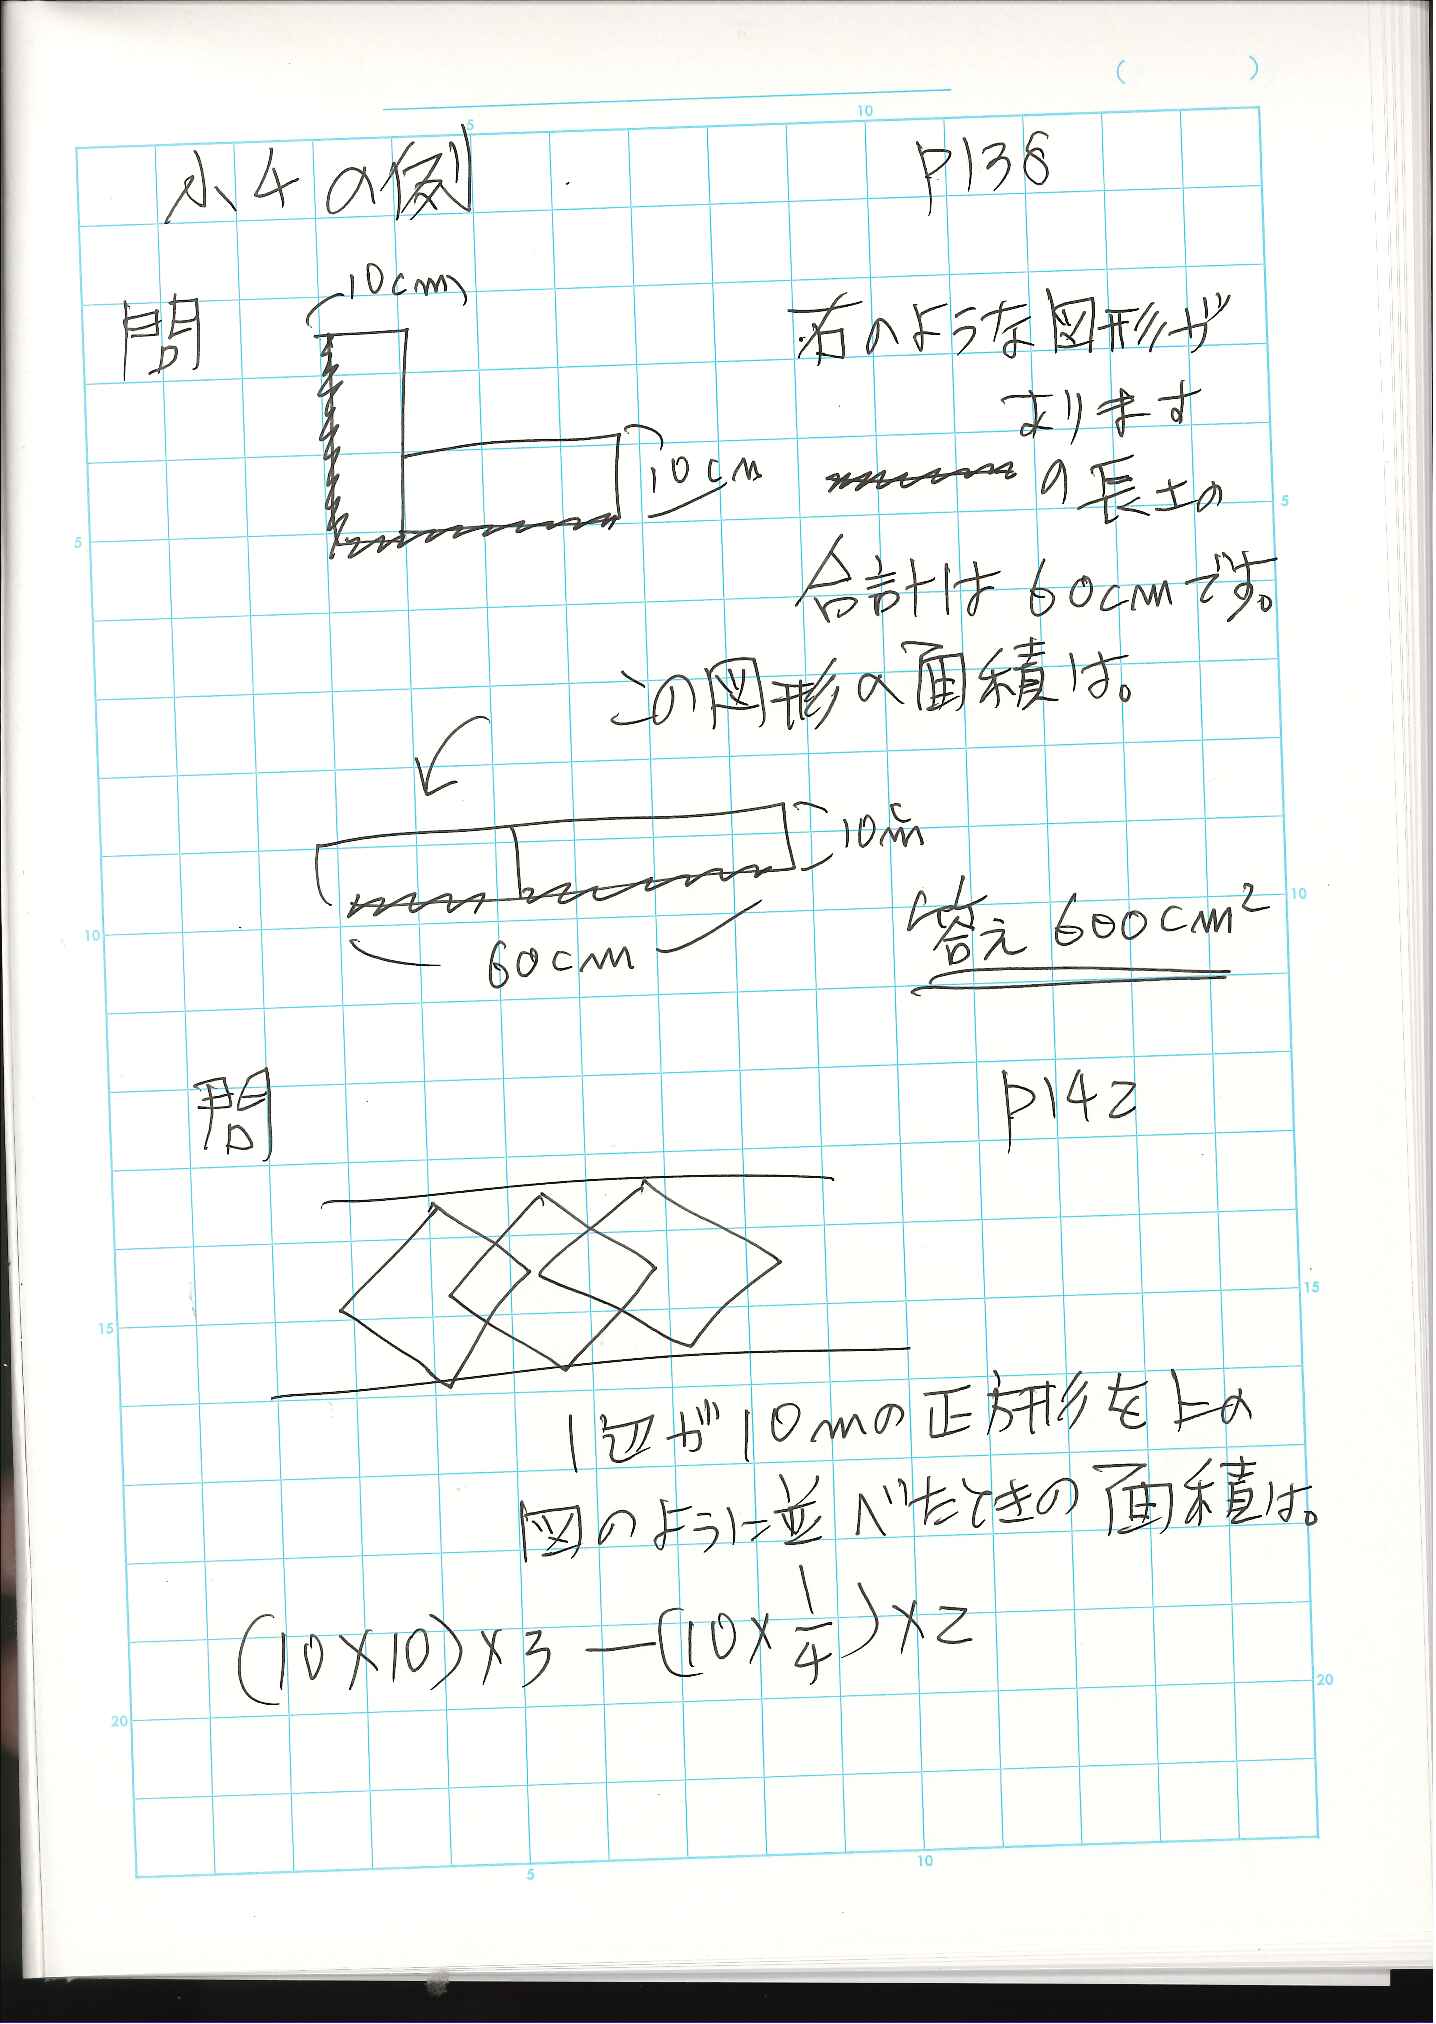 ( )
5 10
小4の例 P138
問 10cm 右のような図形が
あります
10cm の長さの
5 5
合計は60cmです。
この図形の面積は。
10cm
60cm
答え 600cm²
10 10
問 P142
15 15
1辺が10mの正方形を上の
図のように並べたときの面積は。
(10×10)×3-(10×1/4)×2
20 20
5 10